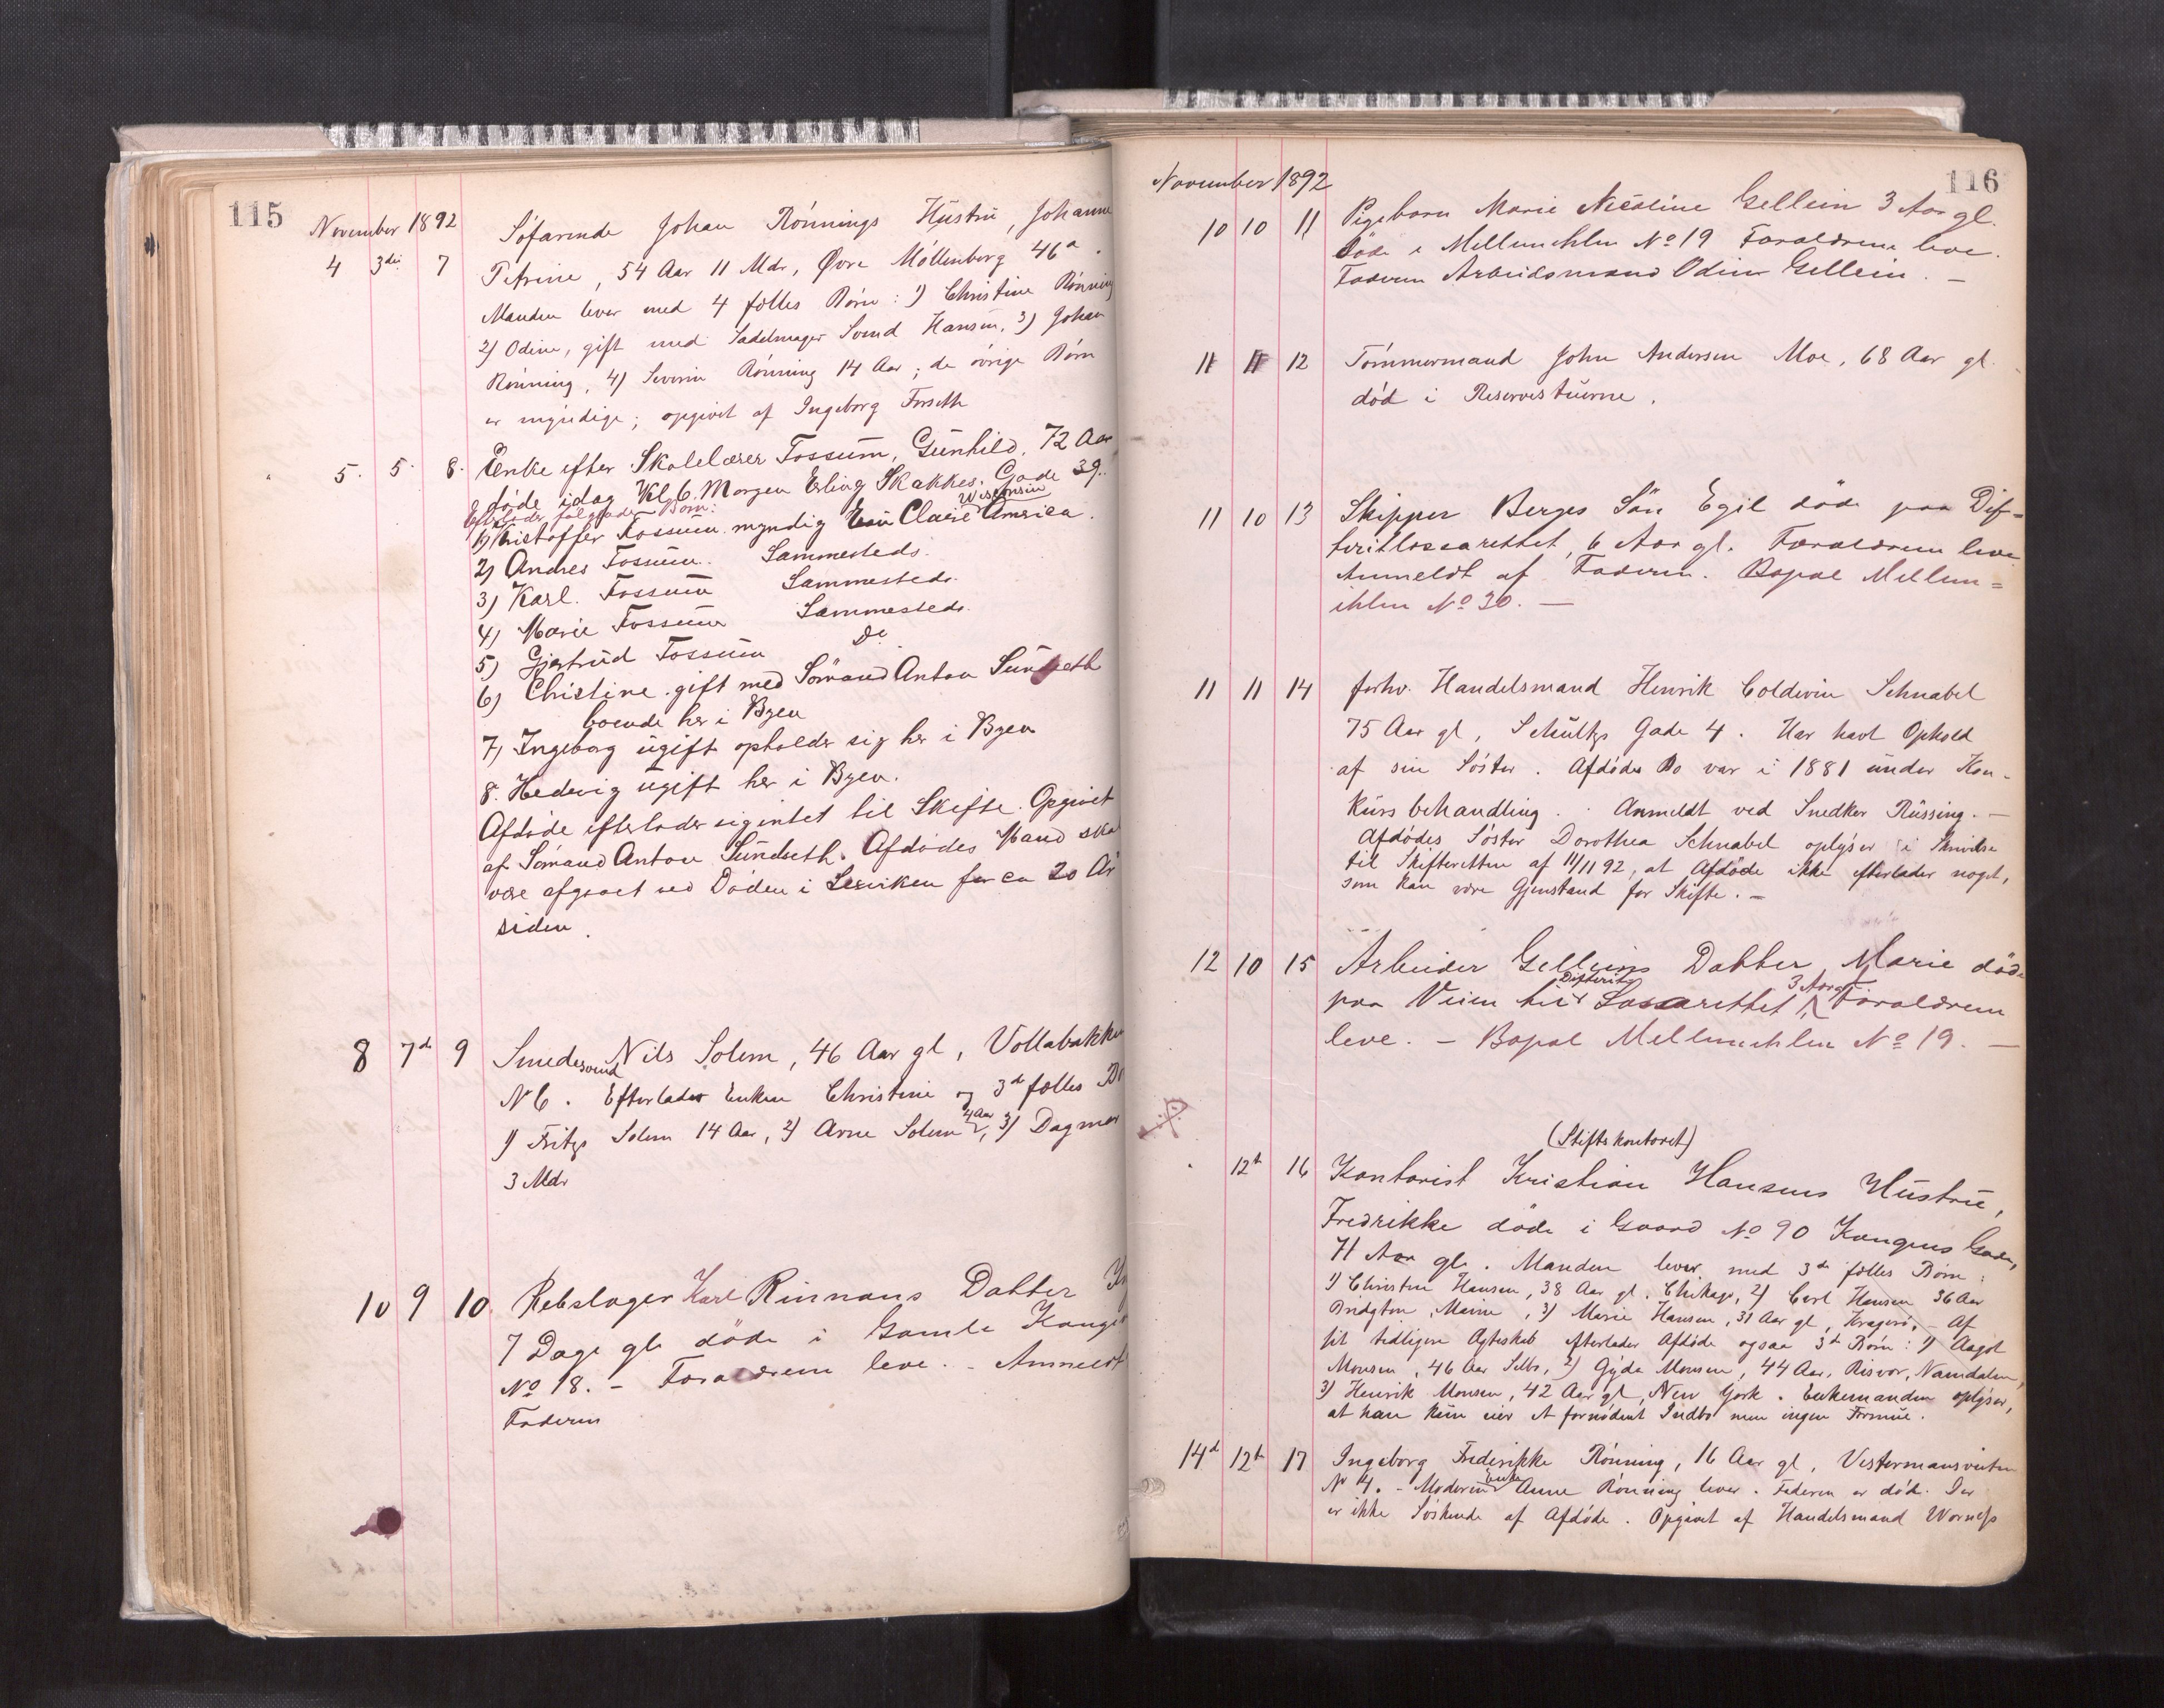 115
November 1892
4 3die 7 Söfarende Johan Rönnings Hustru, Johanne
Petrine, 54 Aar 11 Mdr, Øvre Möllenberg 46a.
Manden lever med 4 fælles Börn: 1) Christine Rönning
2) Odine, gift med Sadelmager Svend Hansen, 3) Johan
Rönning, 4) Severin Rönning 14 Aar; de övrige Börn
er myndige; opgivet af Ingeborg Forseth
5. 5. 8. Enke efter Skolelærer Fossum, Gunhild, 72 Aar
døde idag Kl. 6. Morgen Erling Skakkes Gade 39.
Efterlader følgende Børn: Wisconsin
1) Kristoffer Fossum myndig Eau Claire America.
2) Andres Fossum. Sammesteds.
3) Karl. Fossum Sammesteds.
4) Marie Fossum Sammesteds.
5) Gjertrud Fossum Do
6) Christine gift med Sömand Anton Sundseth
boende her i Byen
7) Ingeborg ugift opholder sig her i Byen
8. Hedevig ugift her i Byen.
Afdøde efterlader sig intet til Skifte. Opgivet
af Sömand Anton Sundseth. Afdødes Mand skal
være afgaaet ved Døden i Lexviken for ca 20 År
siden.
8 7de 9 Smedesvend Nils Solem, 46 Aar gl, Vollabakken
N 6. Efterlader Enken Christine og 3de fælles
1) Fritz Solem 14 Aar, 2) Arne Solem 4 Aar, 3) Dagmar
3 Mdr
10 9 10. Rebslager Karl Rinnans Datter
7 Dage gl. döde i Gamle
No 18. - Foraldrene leve. - Anmeldt
Faderen
116
November 1892
10 10 11 Pigebarn Marie Nicoline Gellein 3 Aar gl.
döde i Mellemihlen No 19 Foraldrene leve.
Faderen Arbeidsmand Odin Gellein. -
11 11 12 Tömmermand John Andersen Moe, 68 Aar gl.
död i Reservestuerne.
11 10 13 Skipper Berges Sön Egil döde paa Dif=
teritlassarettet, 6 Aar gl. Foraldrene leve
Anmeldt af Faderen. Bopæl Mellem=
ihlen No 30. -
11 11 14 forhv. Handelsmand Henrik Coldevin Schnabel
75 Aar gl, Schultzs Gade 4. Har havt Ophold
af sin Söster. Afdödes Bo var i 1881 under Kon-
kursbehandling. Anmeldt ved Snedker Rüssing. -
Afdödes Söster Dorothea Schnabel oplyser i Skrivelse
til Skifteretten af 11/11 92, at Afdöde ikke efterlader noget,
som kan være Gjenstand for Skifte. -
12 10 15 Arbeider Gelleins Datter Marie döde
paa Difterit Lassarettet, 3 Aar gl Foraldrene
leve. - Bopæl Mellemihlen No 19. -
(Stiftskontoret)
12te 16 Kontorist Kristian Hansens Hustru,
Fredrikke döde i Gaard No 90 Kongens Gade,
71 Aar gl. Manden lever med 3de fælles Börn:
1) Christine Hansen, 38 Aar gl. Chikago, 2) Carl Hansen 36 Aar
Bridgton, Maine, 3) Marie Hansen, 31 Aar gl, Kragerö. - Af
sit tidligere Ægteskab efterlader Afdöde ogsaa 3de Börn: 1) Aagot
Monsen, 46 Aar Selbo, 2) Gyda Monsen, 44 Aar, Risvær, Namdalen,
3) Henrik Monsen, 42 Aar gl, New York. Enkemanden oplyser,
at han kun eier et fornödent Indbo men ingen Formue.
14de 12te 17 Ingeborg Frederikke Rönning, 16 Aar gl, Vestermansveiten
N 4. - Moderen Enke Anne Rönning lever. Faderen er död. Der
er ikke Söskende af Afdöde. Opgivet af Handelsmand